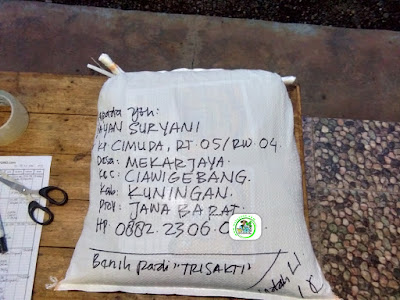 epada Yth:
AYAN SURYANI
CIMUDA, RT 05/RW 04.
Desa: MEKARJAYA.
Kec: CIAWIGEBANG.
Kab: KUNINGAN.
Prov: JAWA BARAT.
HP. 0882.2306.0
Benih Padi "TRISAKTI"